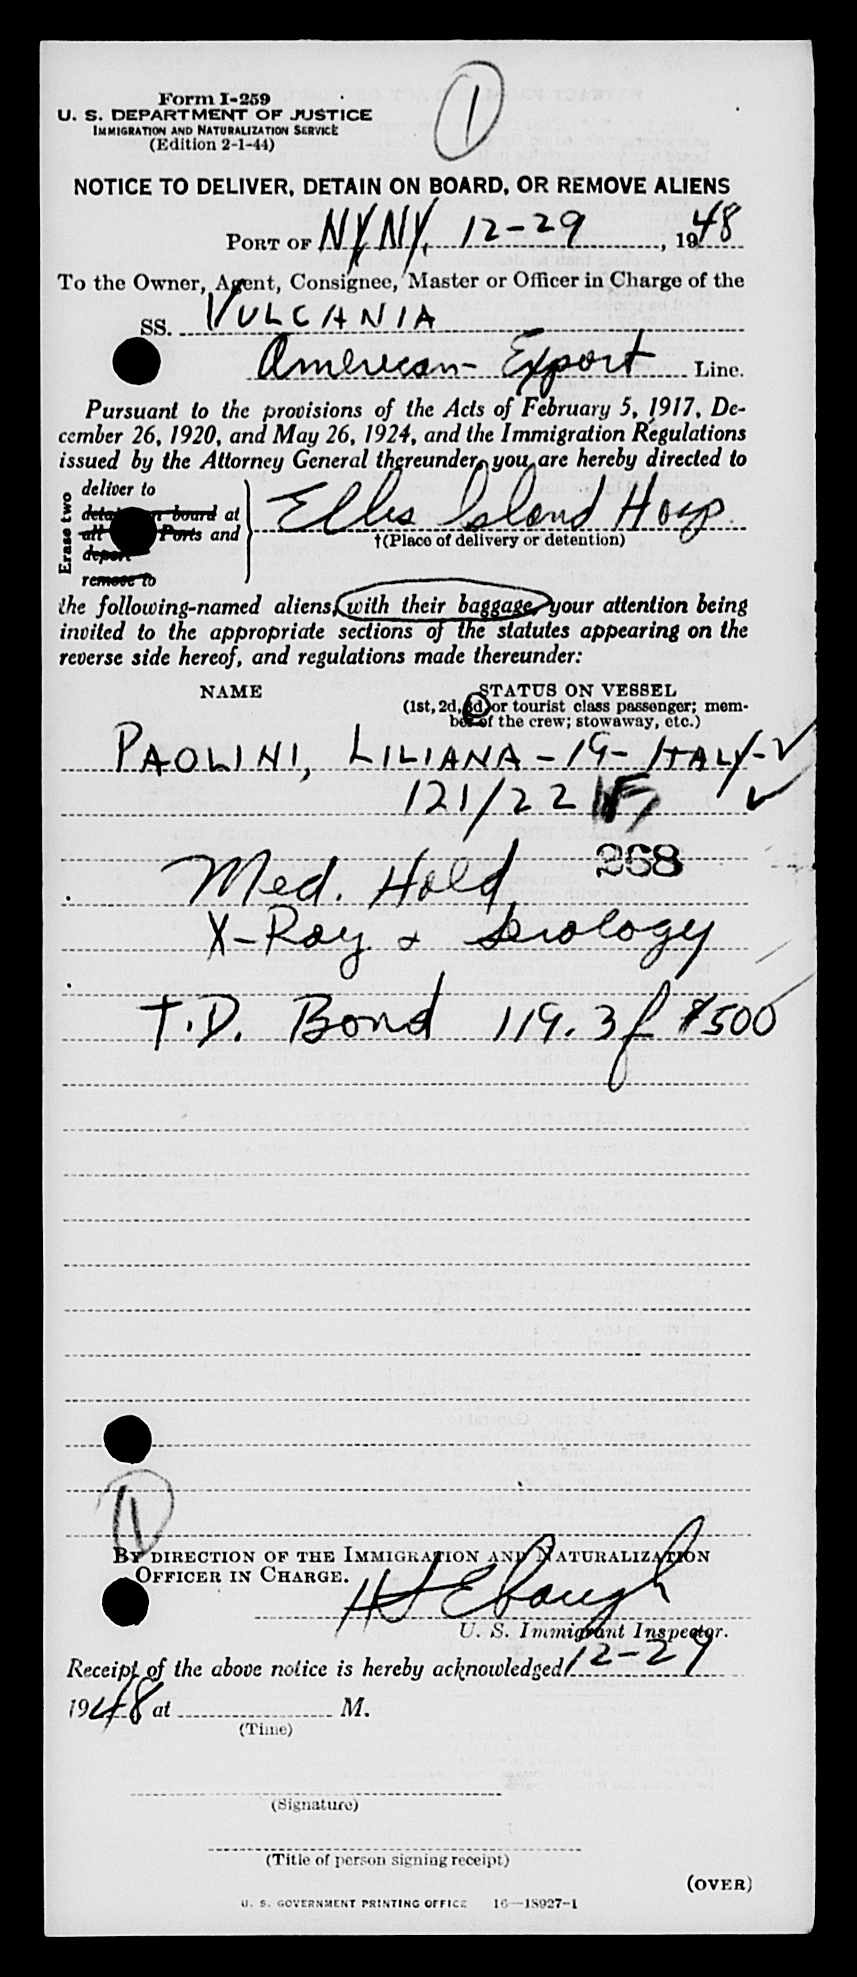 Form I-259
U. S. DEPARTMENT OF JUSTICE
IMMIGRATION AND NATURALIZATION SERVICE
(Edition 2-1-44)
1
NOTICE TO DELIVER, DETAIN ON BOARD, OR REMOVE ALIENS
PORT OF NY NY, 12-29, 1948
To the Owner, Agent, Consignee, Master or Officer in Charge of the
SS. VULCANIA
American Export Line.
Pursuant to the provisions of the Acts of February 5, 1917, De-
cember 26, 1920, and May 26, 1924, and the Immigration Regulations
issued by the Attorney General thereunder, you are hereby directed to
Erase two
deliver to
board at
all Ports and
deport
remove to
Ellis Island Hosp.
†(Place of delivery or detention)
the following-named aliens, with their baggage, your attention being
invited to the appropriate sections of the statutes appearing on the
reverse side hereof, and regulations made thereunder:
NAME STATUS ON VESSEL
(1st, 2d, 3d, or tourist class passenger; mem-
ber of the crew; stowaway, etc.)
PAOLINI, LILIANA - 19 - ITALY -
121/22
268
Med. Hold
X-Ray & Serology
T.D. Bond 119.3f $500
1
BY DIRECTION OF THE IMMIGRATION AND NATURALIZATION
OFFICER IN CHARGE.
H J Ebaugh
U. S. Immigrant Inspector.
Receipt of the above notice is hereby acknowledged 12-29
1948 at M.
(Time)
(Signature)
(Title of person signing receipt)
(OVER)
U. S. GOVERNMENT PRINTING OFFICE 16—18927-1